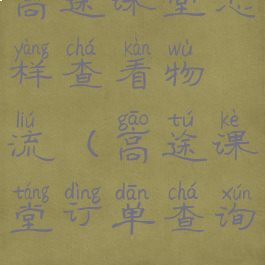 高途课堂怎
yàng chá kàn wù
样查看物
liú gāo tú kè
流（高途课
táng dìng dān chá xún
堂订单查询